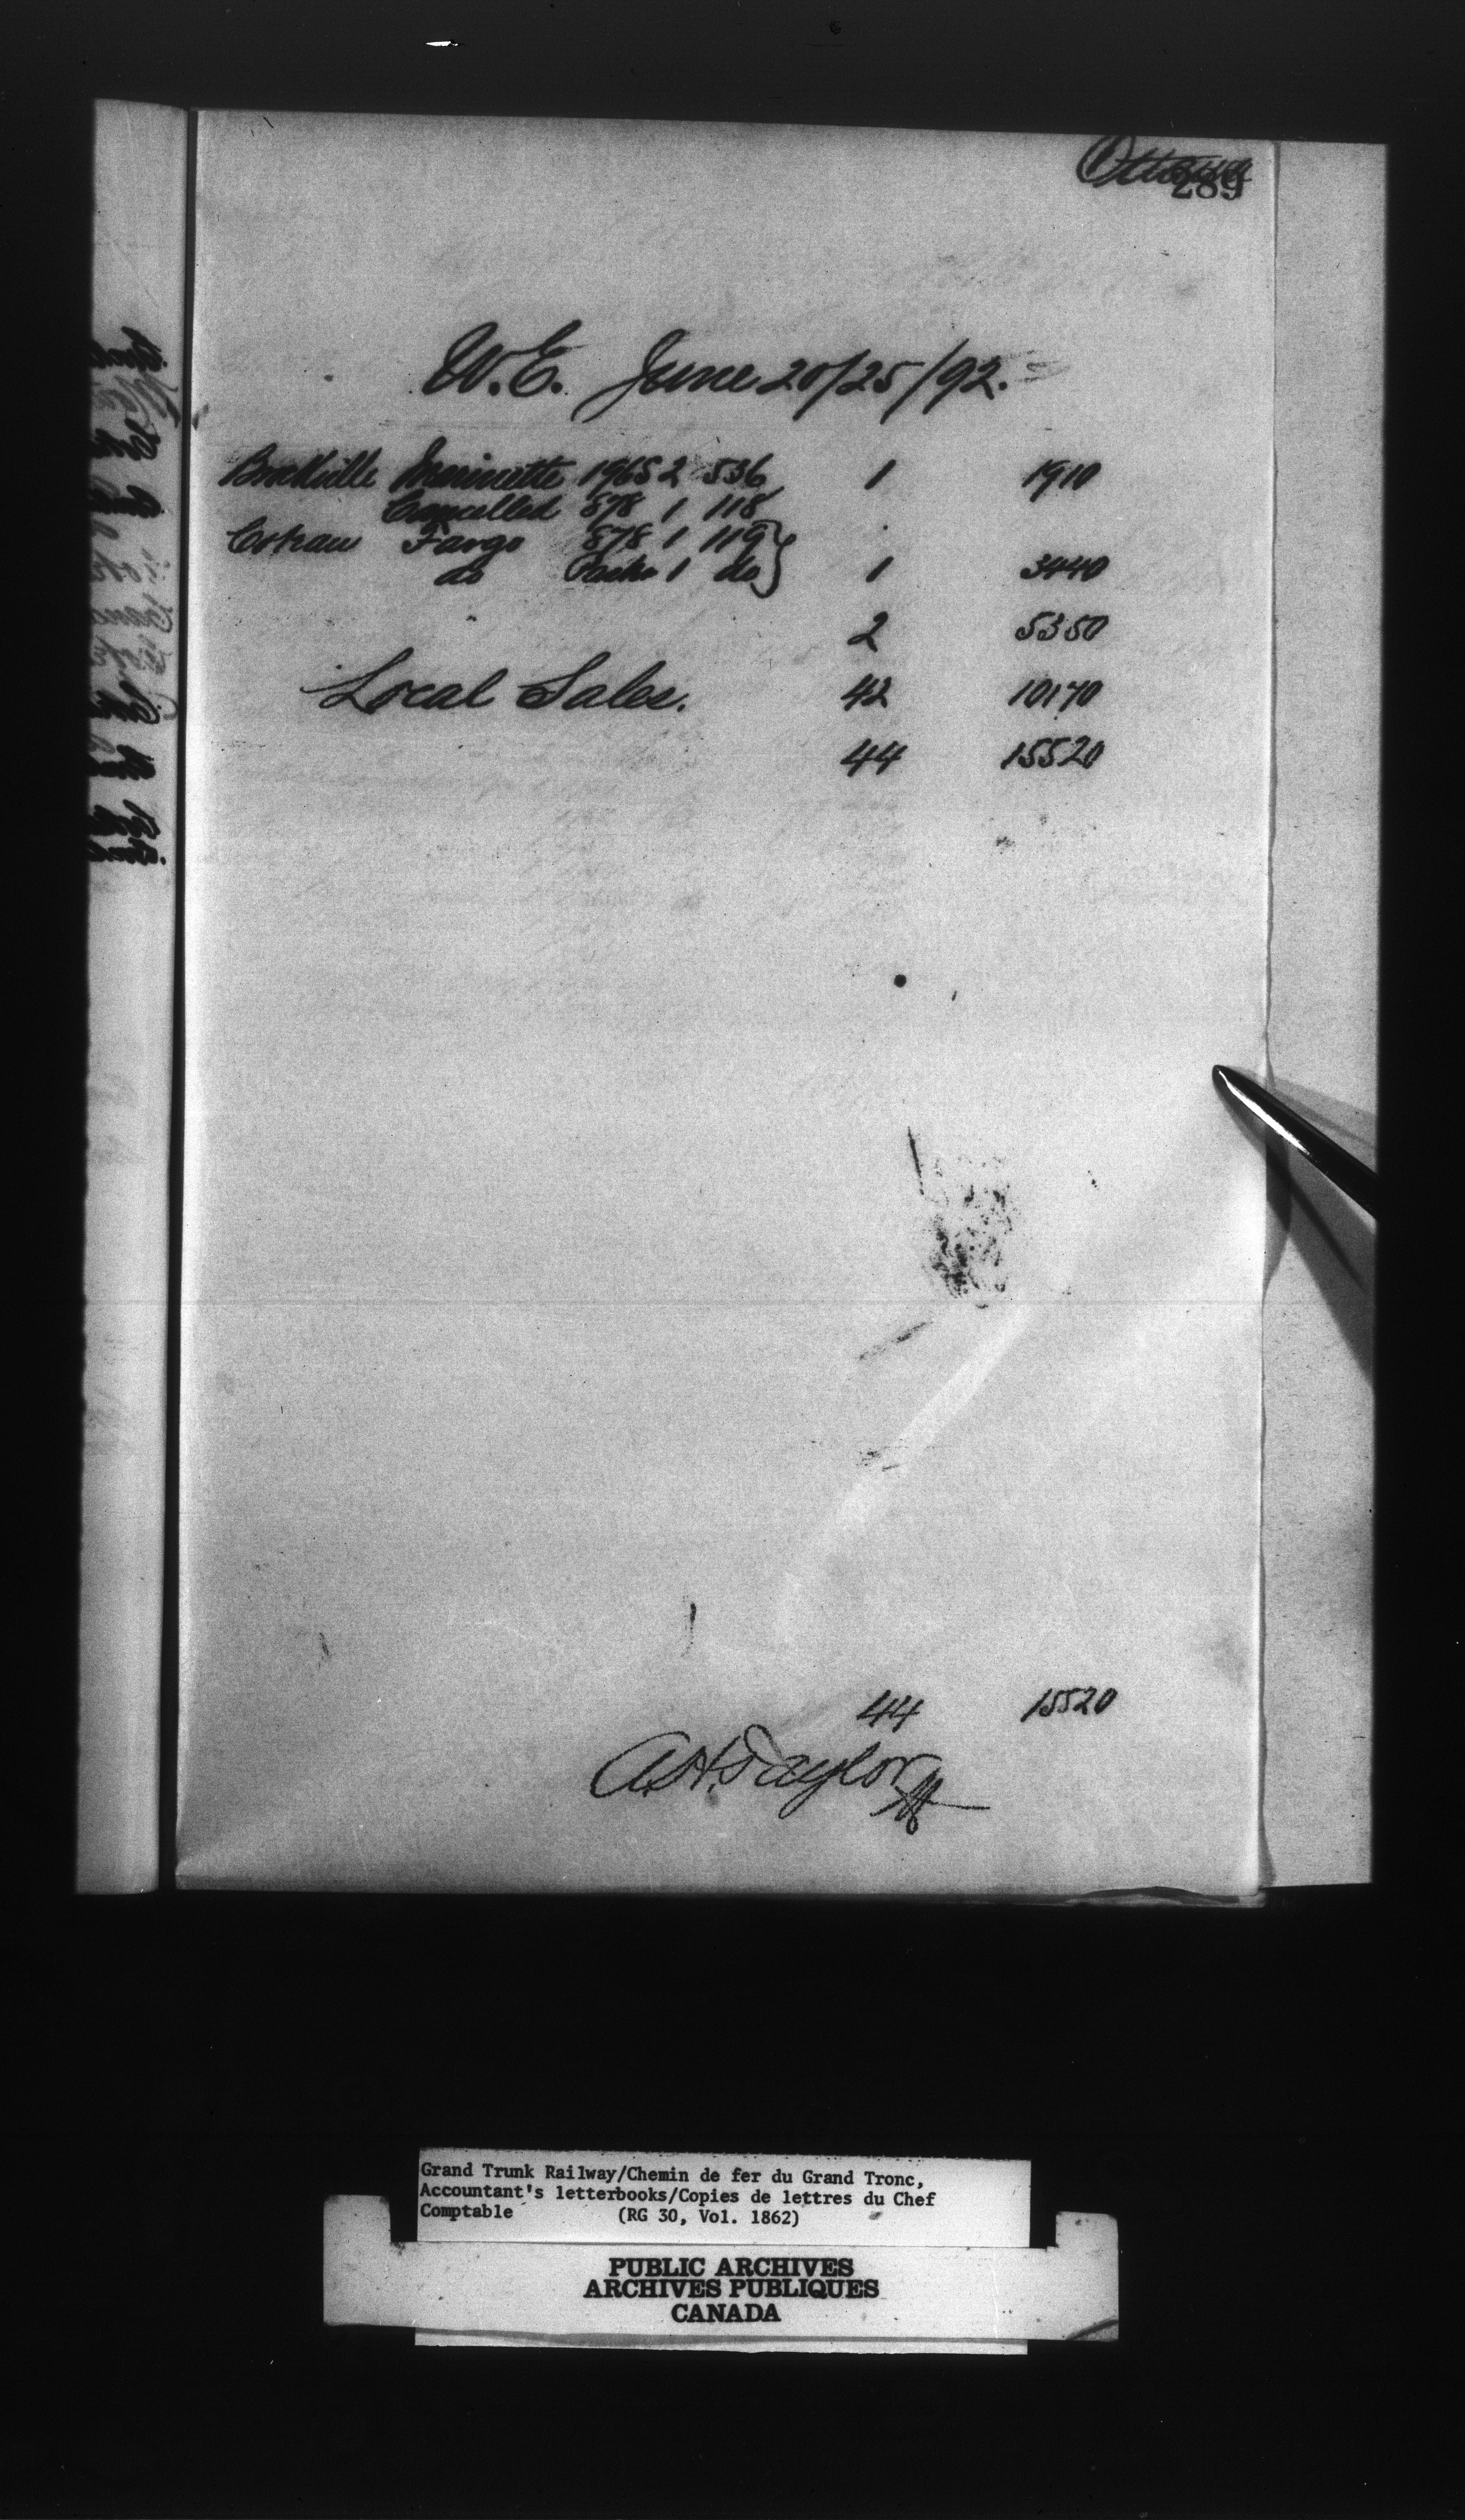 Ottawa
289
W.E. June 20/25/92.
Brockville Marinette 1965 2 536 1 1910
Cancelled 878 1 118
Coteau Fargo 878 1 119 }
do 1 do } 1 3440
2 5350
Local Sales. 42 10170
44 15520
44 15520
A.H. Taylor
Grand Trunk Railway/Chemin de fer du Grand Tronc,
Accountant's letterbooks/Copies de lettres du Chef
Comptable (RG 30, Vol. 1862)
PUBLIC ARCHIVES
ARCHIVES PUBLIQUES
CANADA